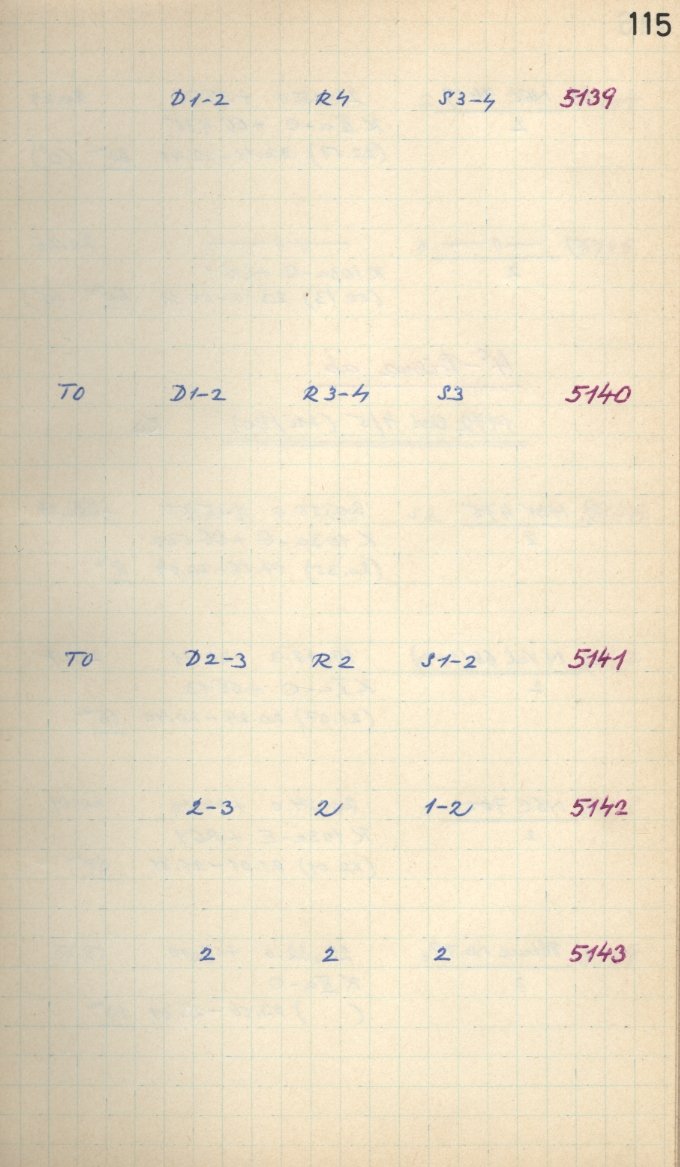 115
D1-2 R4 S3-4 5139
TO D1-2 R3-4 S3 5140
TO D2-3 R2 S1-2 5141
2-3 2 1-2 5142
2 2 2 5143